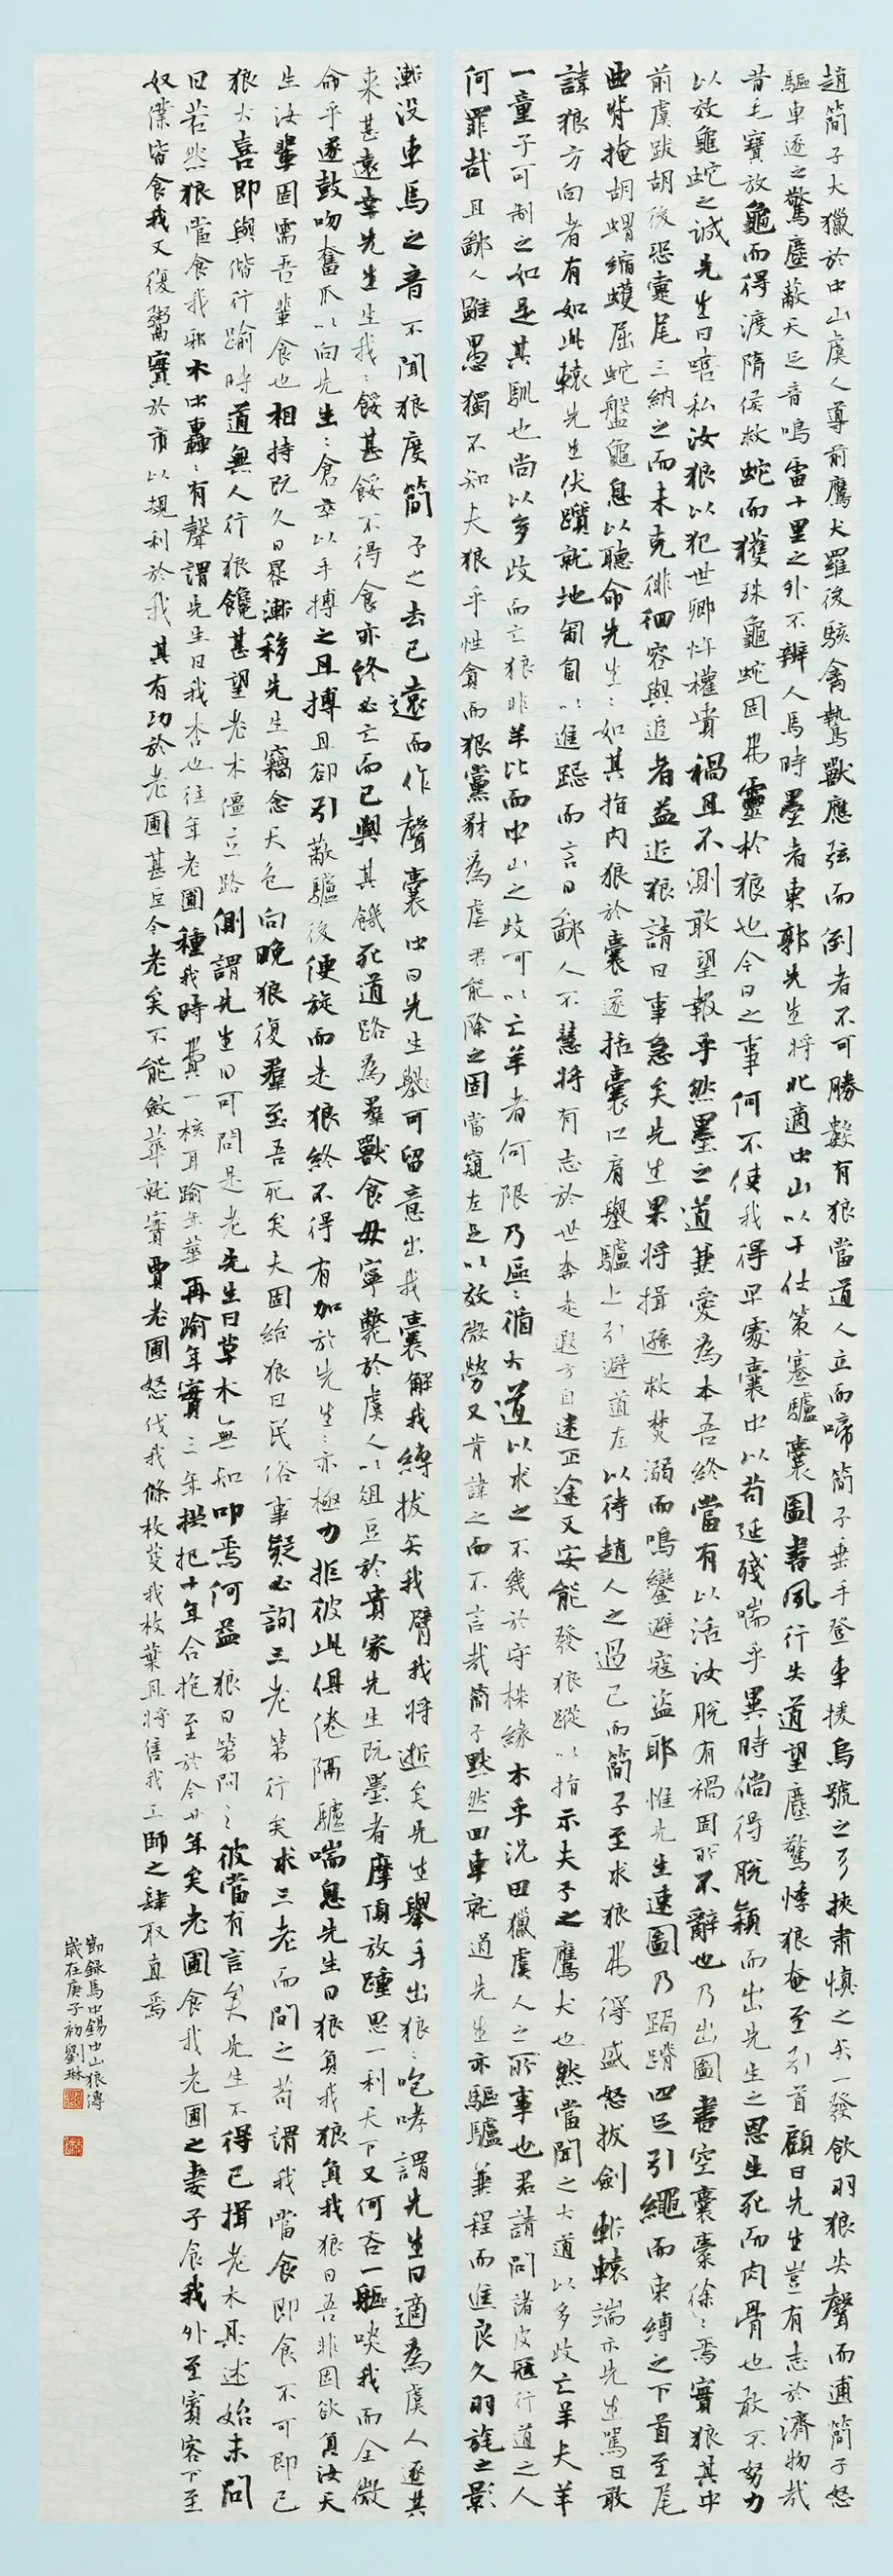 趙簡子大獵於中山虞人導前鷹犬羅後駭禽鷙獸應弦而倒者不可勝數有狼當道人立而啼簡子垂手登車援烏號之弓挾肅慎之矢一發飲羽狼失聲而逋簡子怒
驅車逐之驚塵蔽天足音鳴雷十里之外不辨人馬時墨者東郭先生將北適中山以干仕策蹇驢囊圖書夙行失道望塵驚悸狼奄至引首顧曰先生豈有志於濟物哉
昔毛寶放龜而得渡隋侯救蛇而獲珠龜蛇固弗靈於狼也今日之事何不使我得早處囊中以苟延殘喘乎異時倘得脫穎而出先生之恩生死而肉骨也敢不努力
以效龜蛇之誠先生曰嘻私汝狼以犯世卿忤權貴禍且不測敢望報乎然墨之道兼愛為本吾終當有以活汝脫有禍固所不辭也乃出圖書空囊橐徐ミ焉實狼其中
前虞跋胡後恐壅尾三納之而未克徘徊容與追者益近狼請曰事急矣先生果將揖遜救焚溺而鳴鑾避寇盜耶惟先生速圖乃跼蹐四足引繩而束縛之下首至尾
曲脊掩胡蝟縮蠖屈蛇盤龜息以聽命先生ミ如其指內狼於囊遂括囊口肩舉驢上引避道左以待趙人之過已而簡子至求狼弗得盛怒拔劍斬轅端示先生罵曰敢
諱狼方向者有如此轅先生伏躓就地匍匐以進跽而言曰鄙人不慧將有志於世奔走遐方自迷正途又安能發狼蹤以指示夫子之鷹犬也然嘗聞之大道以多歧亡羊夫羊
一童子可制之如是其馴也尚以多歧而亡狼非羊比而中山之歧可以亡羊者何限乃區ミ循大道以求之不幾於守株緣木乎況田獵虞人之所事也君請問諸皮冠行道之人
何罪哉且鄙人雖愚獨不知夫狼乎性貪而狠黨豺為虐君能除之固當窺左足以效微勞又肯諱之而不言哉簡子默然回車就道先生亦驅驢兼程而進良久羽旄之影
漸沒車馬之音不聞狼度簡子之去已遠而作聲囊中曰先生舉可留意出我囊解我縛拔矢我臂我將逝矣先生舉手出狼ミ咆哮謂先生曰適為虞人逐其
來甚遠幸先生生我ミ餒甚餒不得食亦終必亡而已與其饑死道路為群獸食毋寧斃於虞人以俎豆於貴家先生既墨者摩頂放踵思一利天下又何吝一軀啖我而全微
命乎遂鼓吻奮爪以向先生ミ倉卒以手搏之且搏且卻引蔽驢後便旋而走狼終不得有加於先生ミ亦極力拒彼此俱倦隔驢喘息先生曰狼負我狼負我狼曰吾非固欲負汝天
生汝輩固需吾輩食也相持既久日晷漸移先生竊念天色向晚狼復群至吾死矣夫因紿狼曰民俗事疑必詢三老第行矣求三老而問之苟謂我當食即食不可即已
狼大喜即與偕行踰時道無人行狼饞甚望老木僵立路側謂先生曰可問是老先生曰草木無知叩焉何益狼曰第問ミ彼當有言矣先生不得已揖老木具述始末問
曰若然狼當食我耶木中轟ミ有聲謂先生曰我杏也往年老圃種我時費一核耳踰年華再踰年實三年拱把十年合抱至於今廿年矣老圃食我老圃之妻子食我外至賓客下至
奴僕皆食我又復鬻實於市以規利於我其有功於老圃甚巨今老矣不能斂華就實賈老圃怒伐我條枚芟我枝葉且將售我工師之肆取直焉
節錄馬中錫中山狼傳
歲在庚子初劉琳